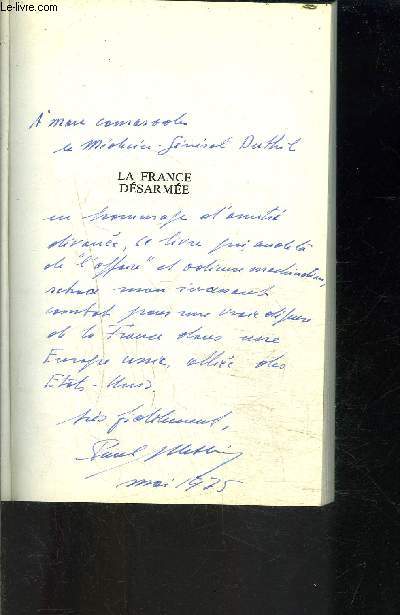 Le-livre.com
À mon camarade
le Médecin-Général Duthil
LA FRANCE
DÉSARMÉE
en hommage d'amitié
dévouée, ce livre qui, au delà
de "l'affaire" et odieuse machination,
retrace mon incessant
combat pour une vraie défense
de la France dans une
Europe unie, alliée des
Etats-Unis.
très fidèlement,
Paul
mai 1975